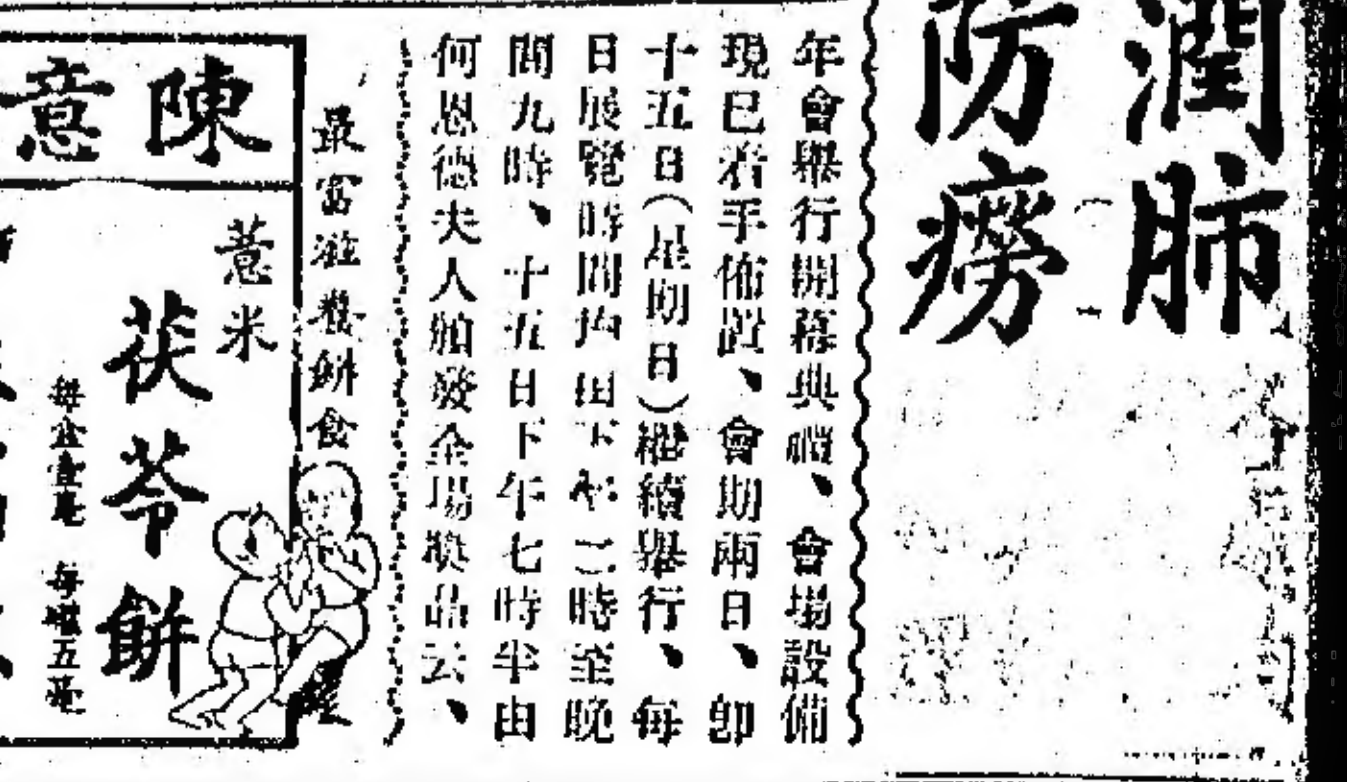 潤肺
防癆
年會舉行開幕典禮、會場設備
現已着手佈置、會期兩日、卽
十五日(星期日)繼續舉行、每
日展覽時間均由下午二時至晚
間九時、十五日下午七時半由
何恩德夫人頒發全場獎品云、
最富滋養餅食
陳意
薏米
茯苓餅
每盒壹毫 每罐五毫